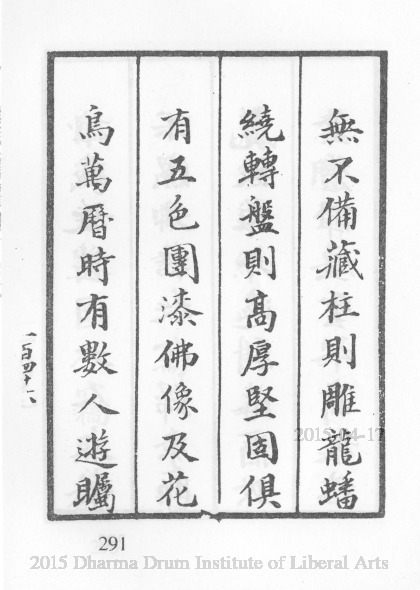 無不備藏柱則雕龍蟠
繞轉盤則高厚堅固俱
有五色團漆佛像及花
鳥萬曆時有數人遊矚
一百四十六
291
2015-04-17
2015 Dharma Drum Institute of Liberal Arts